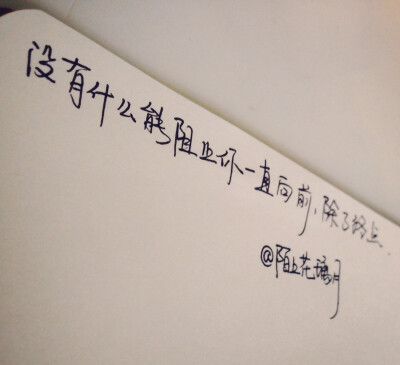 没有什么能阻止你一直向前，除了终点.
@陌上花璃月